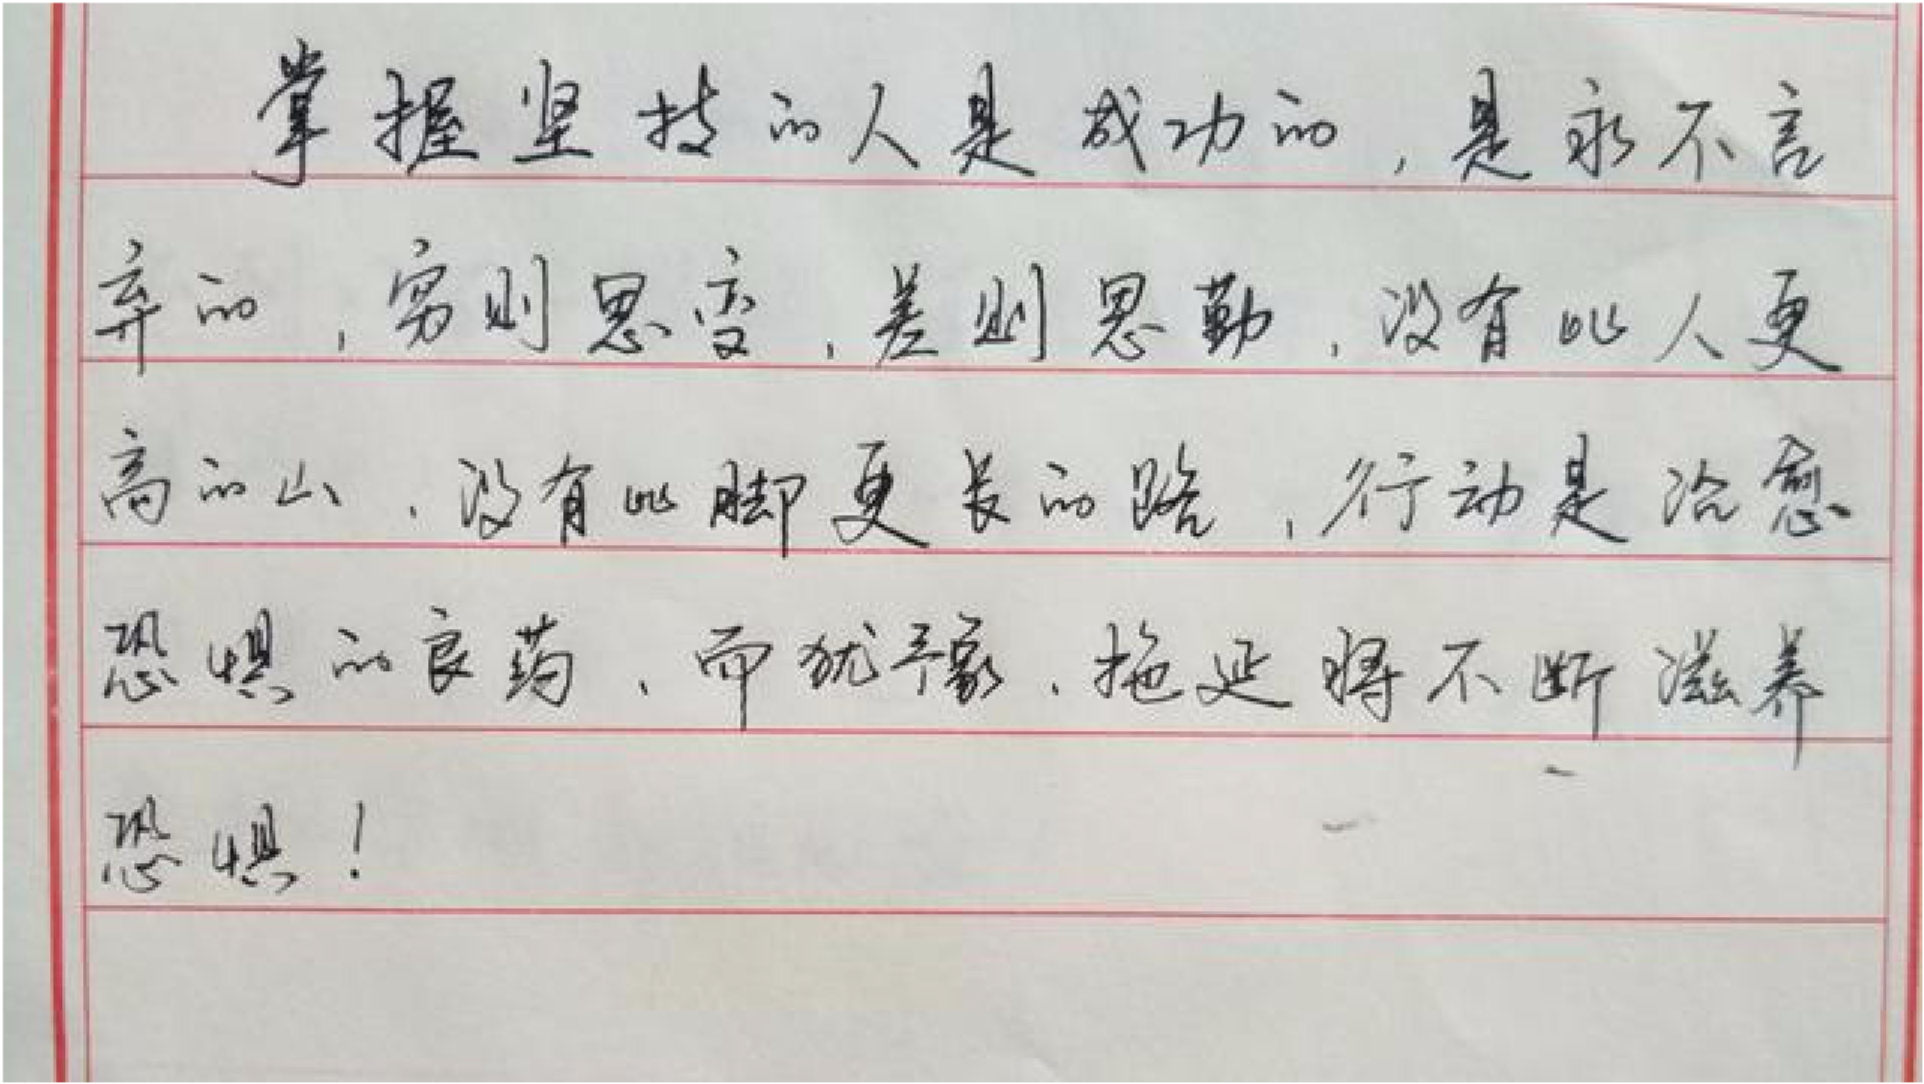 掌握坚技的人是成功的，是永不言
弃的，穷则思变，差则思勤，没有比人更
高的山，没有比脚更长的路，行动是治愈
恐惧的良药，而犹豫、拖延将不断滋养
恐惧！